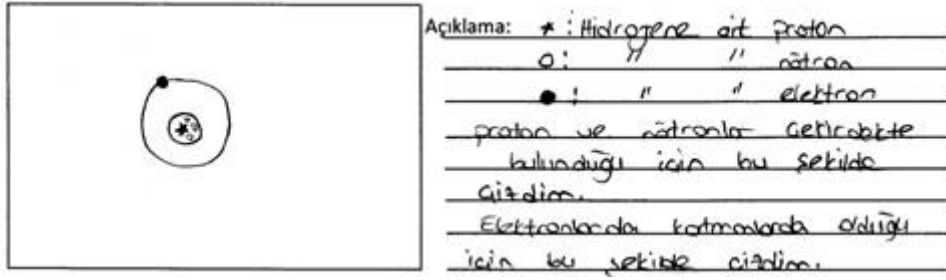 Açıklama: * : Hidrojene ait proton
o : " " nötron
● : " " elektron
proton ve nötronlar çekirdekte
bulunduğu için bu şekilde
çizdim.
Elektronlarda katmanlarda olduğu
için bu şekilde çizdim.